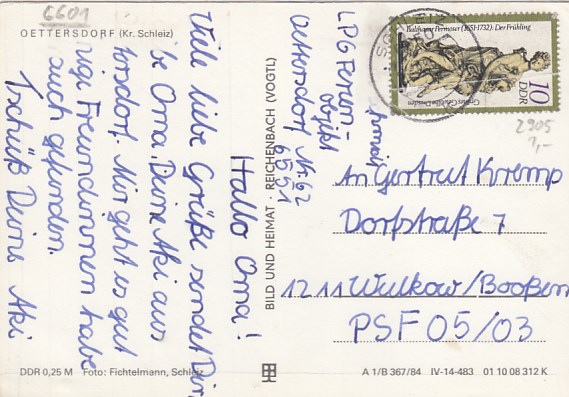 6601
OETTERSDORF (Kr. Schleiz)
Hallo Oma!
Viele liebe Grüße sendet Dir,
liebe Oma, Deine Aki aus
torsdorf. Mir geht es gut
Freundinnen habe
auch gefunden.
Tschüß Deine Aki
DDR 0,25 M Foto: Fichtelmann, Schleiz
BILD UND HEIMAT · REICHENBACH (VOGTL)
LPG Ferien-
objekt
Oettersdorf Nr. 62
6551
Balthasar Permoser (1651-1732): Der Frühling
Grünes Gewölbe Dresden
10
DDR
2905
1,-
An Gertrud Kremp
Dorfstraße 7
1211 Wulkow/Booßen
PSF 05/03
A 1/B 367/84 IV-14-483 01 10 08 312 K